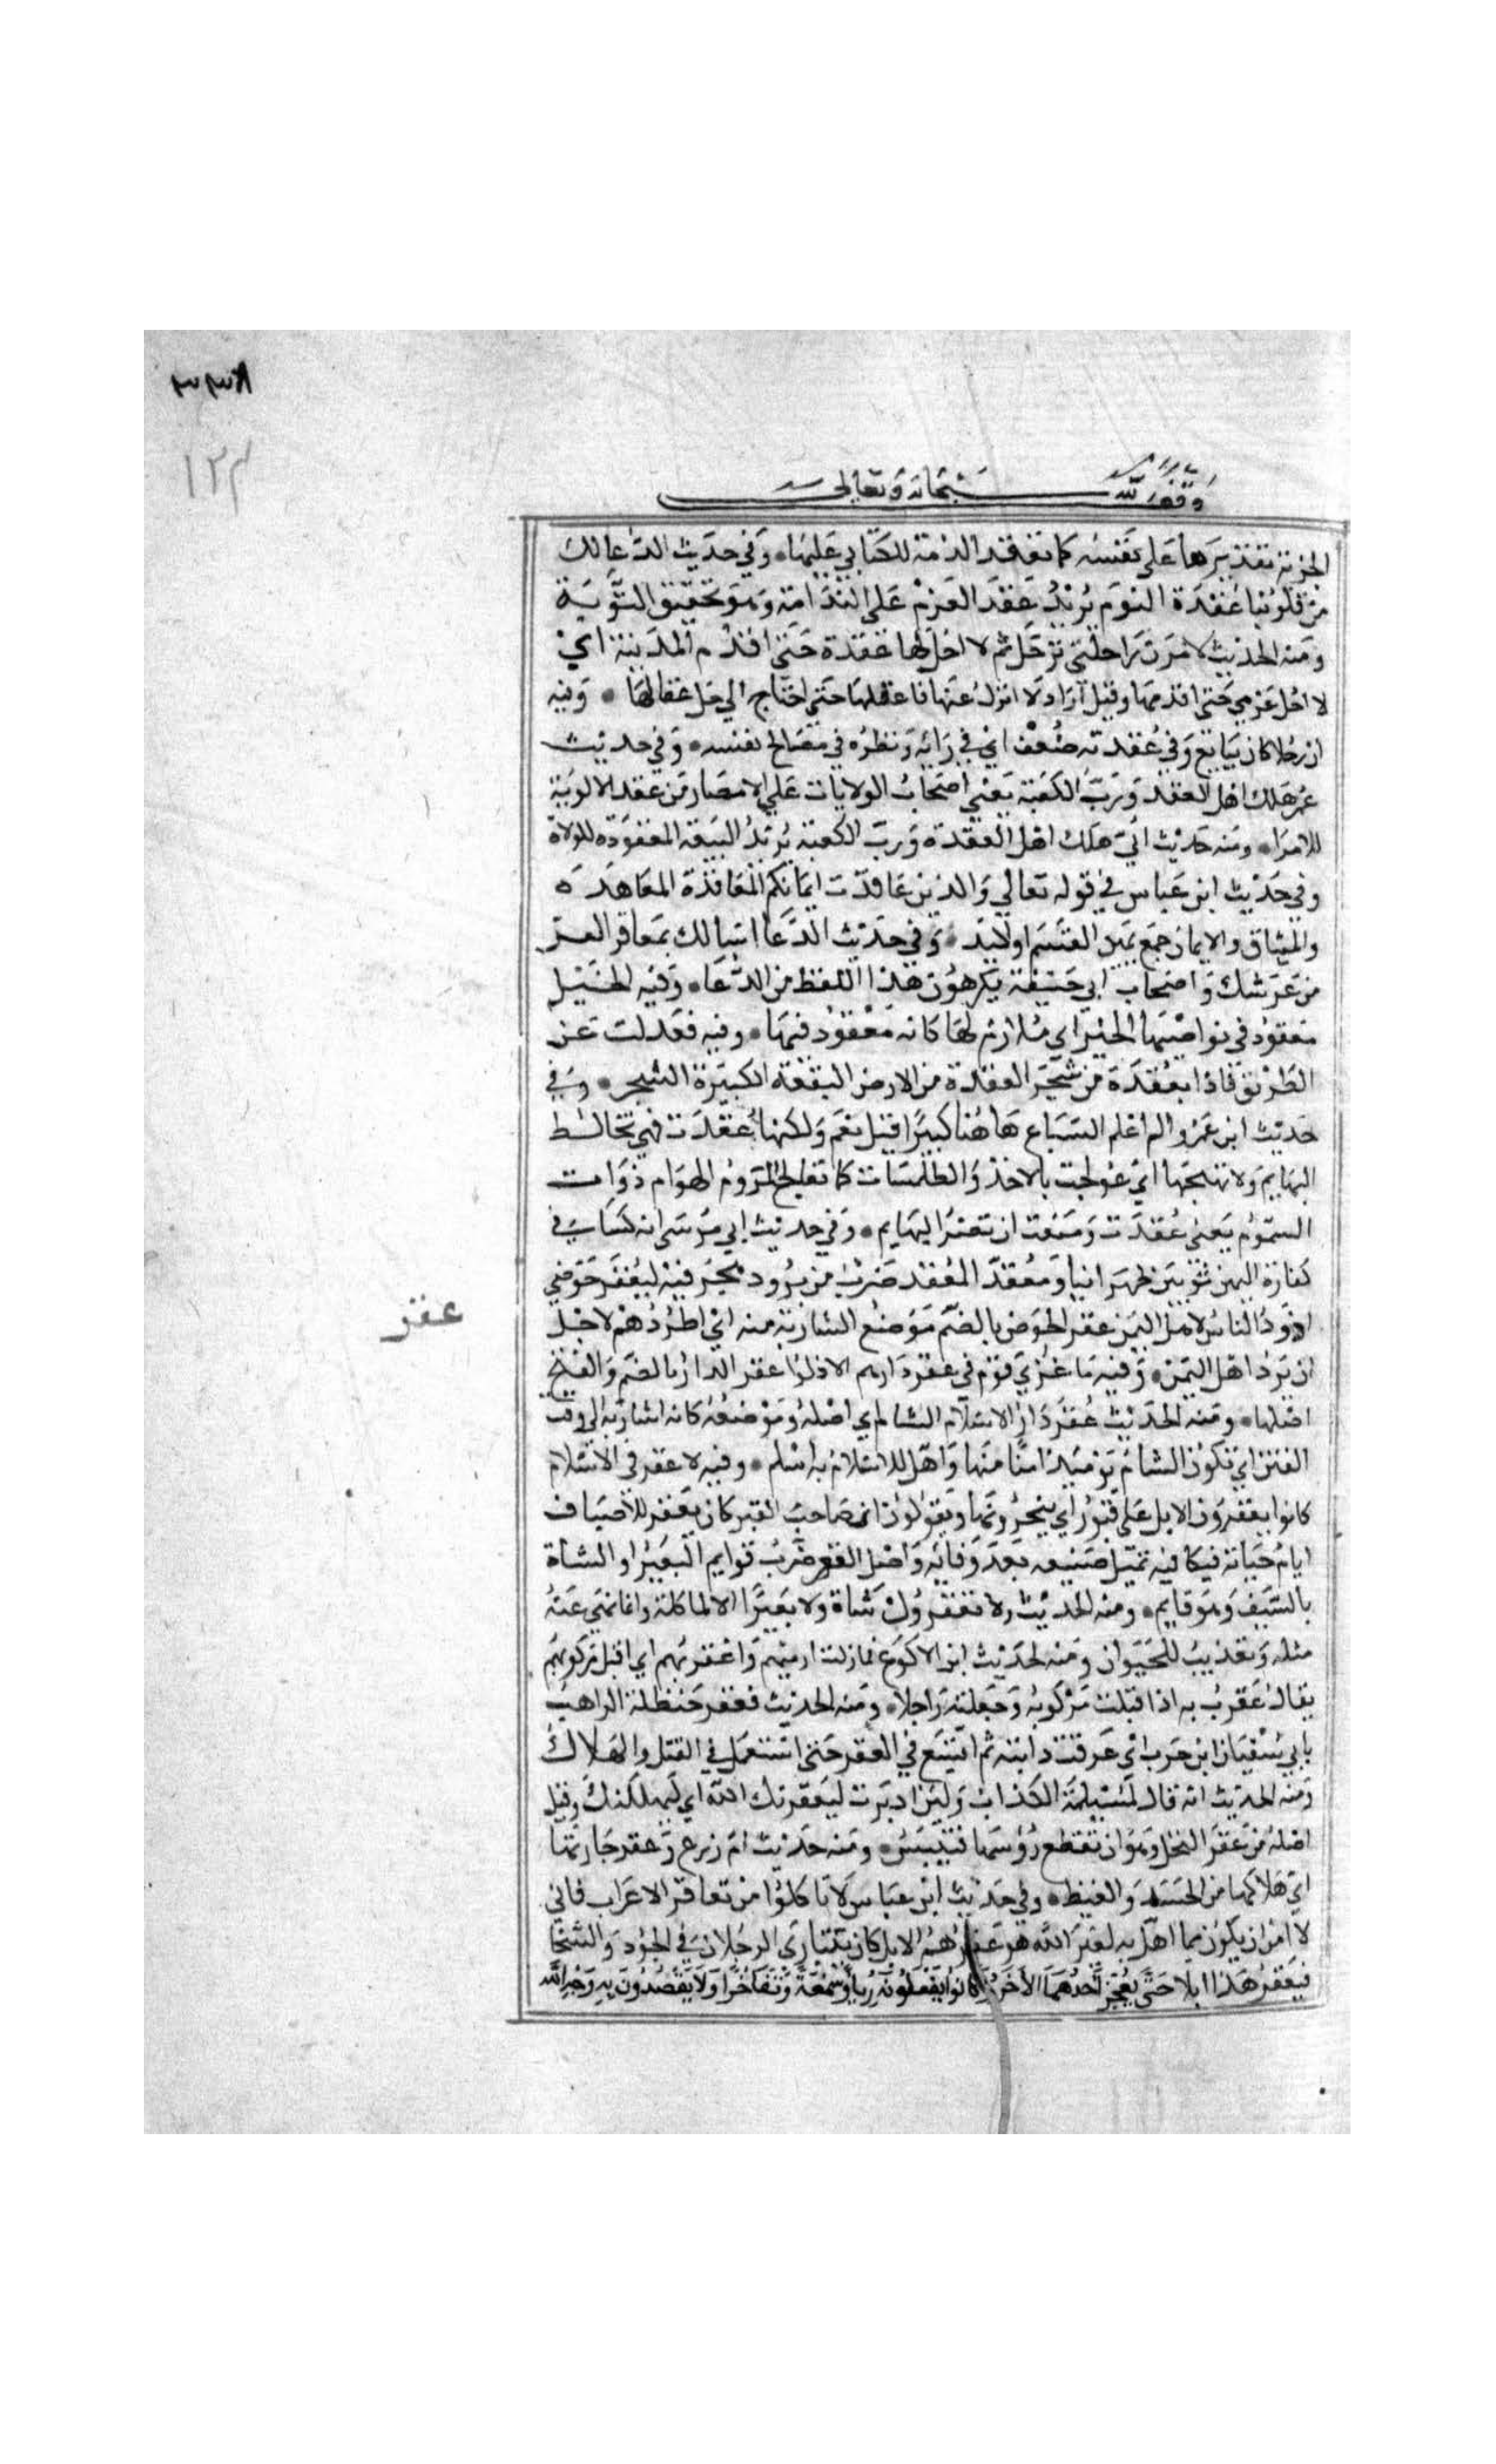 ١٢٣
وقف لله سبحانه وتعالى
الجزية تقديرها على نفسه كما تعقد الذمة للكتابي عليها وفي حديث الدعا لك
من قلوبنا عقدة الندم يريد عقد العزم على الندامة وهو تحقيق التوبة
ومنه الحديث لامرن براحلتي ترحل ثم لا احل لها عقدة حتى اقدم المدينة اي
لا احل عزمي حتى اقدمها وقيل اراد لا انزل عنها فاعقلها حتى احتاج الي حل عقالها وفيه
ان رجلا كان يبايع وفي عقدته ضعف اي في رايه ونظره في مصالح نفسه وفي حديث
عمر هلك اهل العقد ورب الكعبة يعني اصحاب الولايات علي الامصار من عقد الالوية
للامرا ومنه حديث ابي هلك اهل العقدة ورب الكعبة يريد البيعة المعقودة للولاة
وفي حديث ابن عباس في قوله تعالي والذين عاقدت ايمانكم المعاقدة المعاهدة
والميثاق والايمان جمع يمين القسم او لايد وفي حديث الدعا اسالك بمعاقد العز
من عرشك واصحاب ابي حنيفة يكرهون هذا اللفظ من الدعا وفيه الخيل
معقود في نواصيها الخير اي ملازم لها كانه معقود فيها وفيه فعدلت عن
الطريق فاذا بعقدة من شجر العقدة من الارض البقعة الكبيرة الشجر وفي
حديث ابن عمرو الم اعلم السباع هاهنا كبيرا قيل نعم ولكنها عقدت فهي تخالط
البهايم ولا تهيجها اي عولجت بالاخذ والطلسمات كما تعالج الروم الهوام ذوات
السموم يعني عقدت ومنعت ان تعقر البهايم وفي حديث ابي موسى انه كسا في
كفارة اليمين ثوبين ظهرانيا ومعقدا المعقد ضرب من برود هجر فيه لبعقر حوضي
عقر
اذود الناس لاهل اليمن عقر الحوض بالضم موضع الشاربة منه اي اطردهم لاجل
ان يرد اهل اليمن وفيه ما غزي قوم في عقر دارهم الا ذلوا عقر الدار بالضم والفتح
اصلها ومنه الحديث عقر دار الاسلام الشام اي اصله وموضعه كانه اشار به الي وقت
الفتن اي تكون الشام يوميذ امنا منها واهل الاسلام به اسلم وفيه لا عقر في الاسلام
كانوا يعقرون الابل علي قبور اي ينحرونها ويقولون ان صاحب القبر كان يعقر للاضياف
ايام حياته فيكافيه بمثل صنيعه بعد وفاته واصل العقر ضرب قوايم البعير او الشاة
بالسيف وهو قايم ومنه الحديث ولا تعقرون شاة ولا بعيرا الا لماكلة وانما نهي عنه
مثله وتعذيب للحيوان ومنه الحديث ابن الاكوع فما زلت ارميهم واعقر بهم اي اقبل مركوبهم
يقال عقرت به اذا قتلت مركوبه وجعلته راجلا ومنه الحديث فعقر حنظلة الراهب
بابي سفيان ابن حرب اي عرقت دابته ثم اتسع في العقر حتى استعمل في القتل والهلاك
ومنه الحديث انه قال لمسيلمة الكذاب ولين ادبرت ليعقرنك الله اي ليهلكنك وقيل
اصله من عقر النخل وهو ان تقطع رؤسها فتيبس ومنه حديث ام زرع وعقر جارتها
اي هلاكها من الحسد والغيظ وفي حديث ابن عباس لا تاكلوا من تعاقر الاعراب فاني
لا امن ان يكون مما اهل به لغير الله هو عقرهم الابل كان يتبارى الرجلان في الجود والسخا
فيعقر هذا ابلا حتى يعجز احدهما الاخر كانوا يفعلونه ريا وسمعة وتفاخرا ولا يقصدون به وجه الله